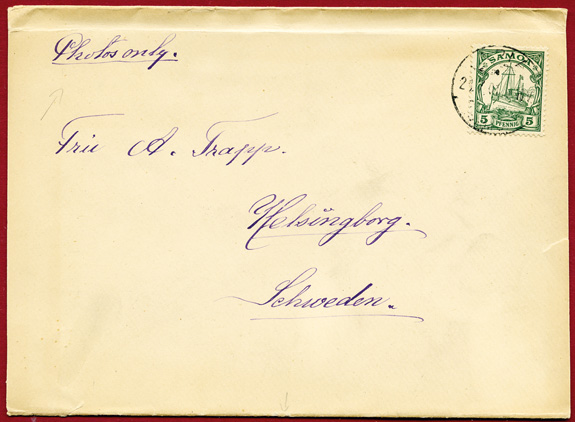 Photos only.
SAMOA
5 PFENNIG 5
Frü A. Trapp.
Helsingborg.
Schweden.